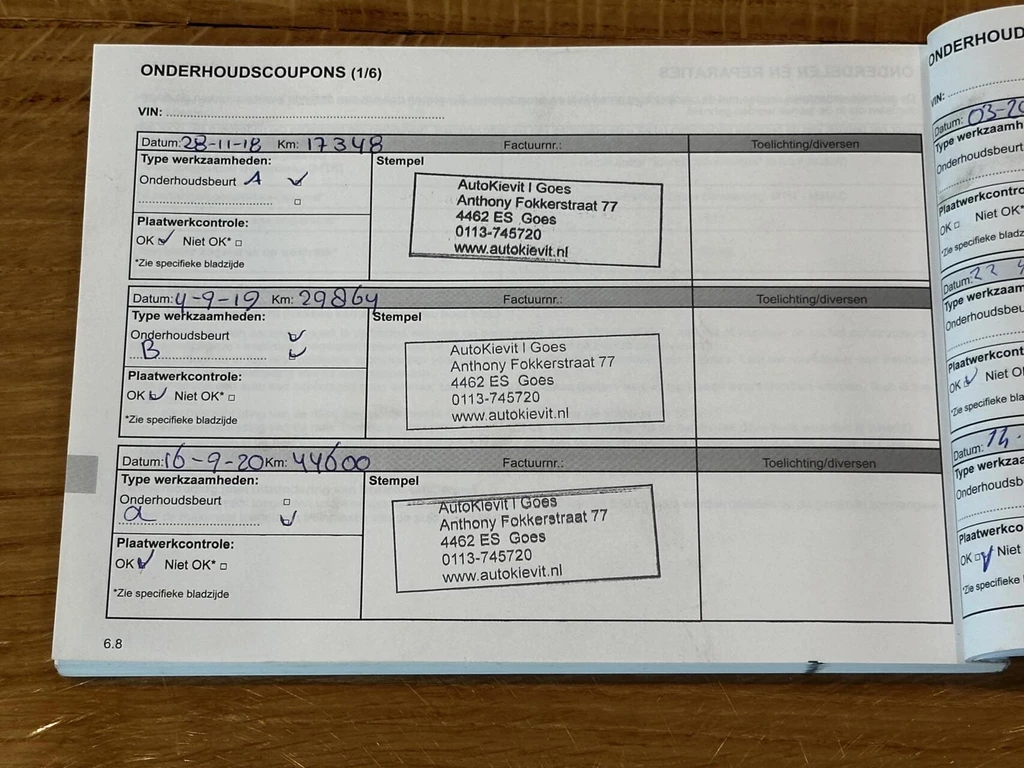 ONDERHOUDSCOUPONS (1/6)
VIN:
Datum: 28-11-18 Km: 17348 Factuurnr.: Toelichting/diversen
Type werkzaamheden: Stempel
Onderhoudsbeurt A
AutoKievit | Goes
Anthony Fokkerstraat 77
4462 ES Goes
0113-745720
www.autokievit.nl
Plaatwerkcontrole:
OK Niet OK*
*Zie specifieke bladzijde
Datum: 4-9-19 Km: 29864 Factuurnr.: Toelichting/diversen
Type werkzaamheden: Stempel
Onderhoudsbeurt
B
AutoKievit | Goes
Anthony Fokkerstraat 77
4462 ES Goes
0113-745720
www.autokievit.nl
Plaatwerkcontrole:
OK Niet OK*
*Zie specifieke bladzijde
Datum: 16-9-20 Km: 44600 Factuurnr.: Toelichting/diversen
Type werkzaamheden: Stempel
Onderhoudsbeurt
a
AutoKievit | Goes
Anthony Fokkerstraat 77
4462 ES Goes
0113-745720
www.autokievit.nl
Plaatwerkcontrole:
OK Niet OK*
*Zie specifieke bladzijde
6.8
ONDERHOUD
VIN:
Datum: 03-
Type werkzaamh
Onderhoudsbeurt
Plaatwerkcontro
OK Niet OK*
*Zie specifieke bladz
Datum: 22
Type werkzaam
Onderhoudsbeu
Plaatwerkcont
OK Niet O
*Zie specifieke bla
Datum: 14-
Type werkza
Onderhoudsb
Plaatwerkco
OK Niet
*Zie specifieke